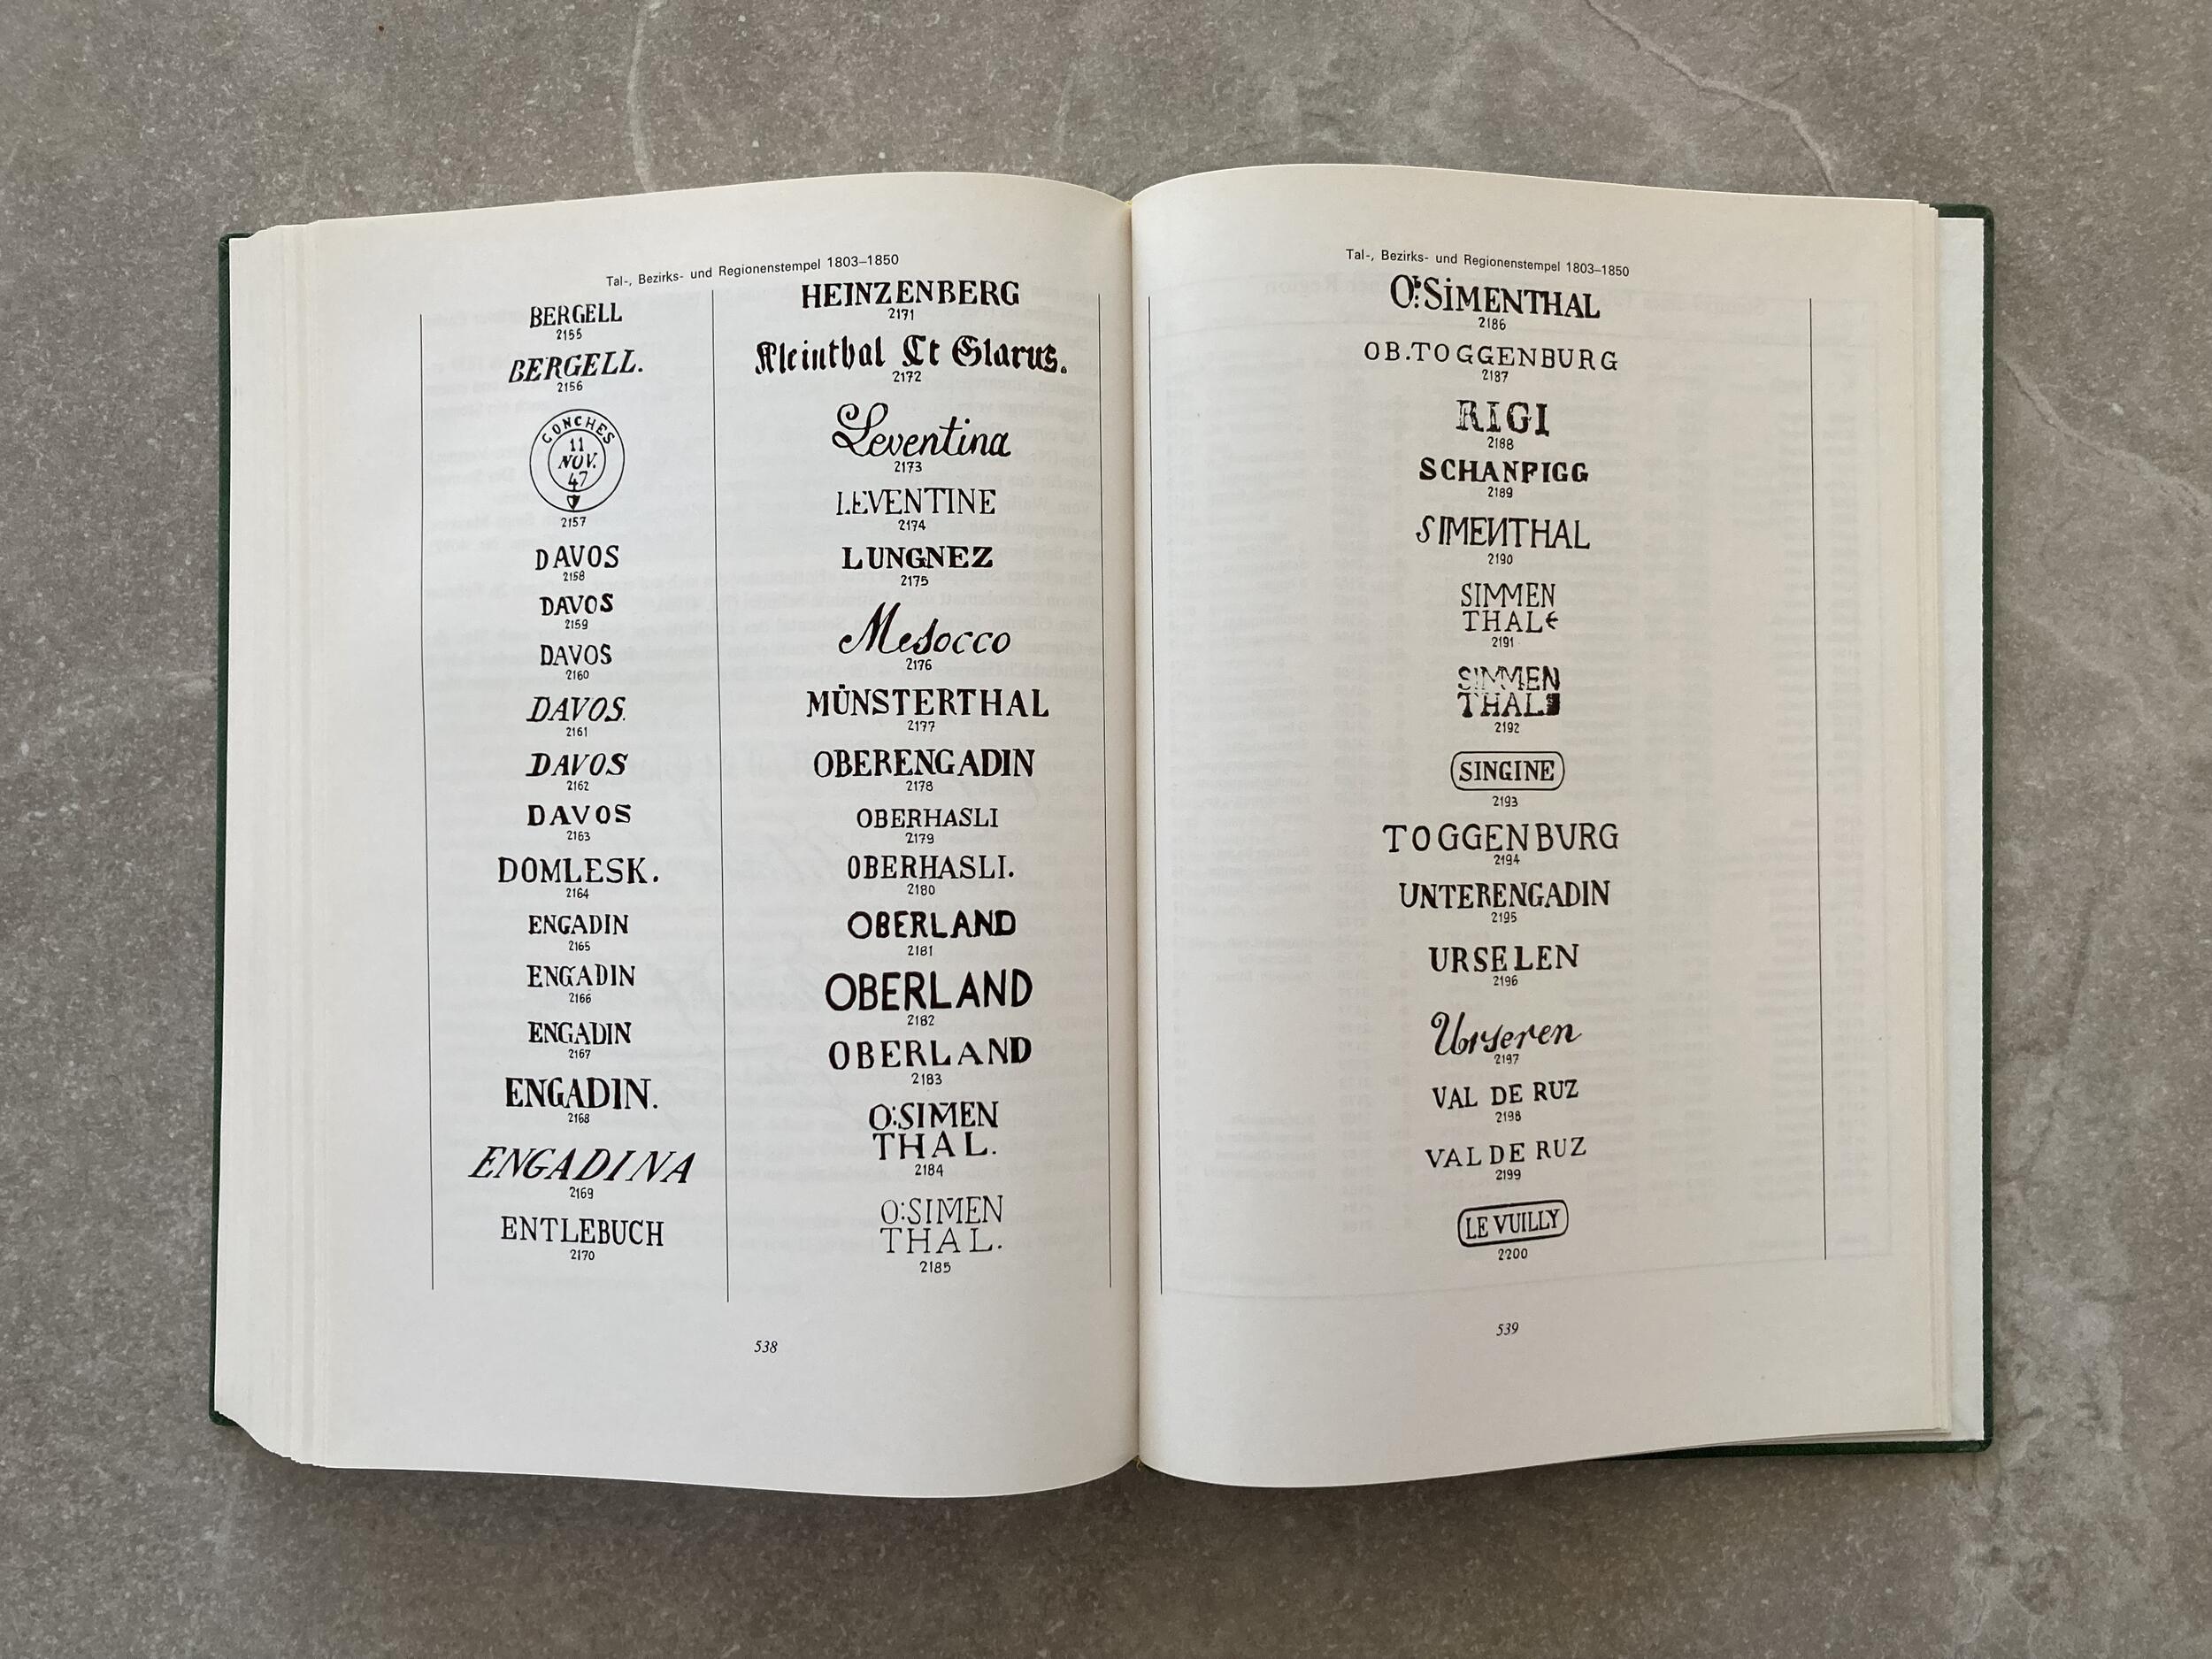 Tal-, Bezirks- und Regionenstempel 1803–1850
BERGELL
2155
BERGELL.
2156
CONCHES
11
NOV.
47
2157
DAVOS
2158
DAVOS
2159
DAVOS
2160
DAVOS.
2161
DAVOS
2162
DAVOS
2163
DOMLESK.
2164
ENGADIN
2165
ENGADIN
2166
ENGADIN
2167
ENGADIN.
2168
ENGADINA
2169
ENTLEBUCH
2170
HEINZENBERG
2171
Kleinthal Ct Glarus.
2172
Leventina
2173
LEVENTINE
2174
LUNGNEZ
2175
Mesocco
2176
MÜNSTERTHAL
2177
OBERENGADIN
2178
OBERHASLI
2179
OBERHASLI.
2180
OBERLAND
2181
OBERLAND
2182
OBERLAND
2183
O:SIMEN
THAL.
2184
O:SIMEN
THAL.
2185
538
Tal-, Bezirks- und Regionenstempel 1803–1850
O:SIMENTHAL
2186
OB.TOGGENBURG
2187
RIGI
2188
SCHANPIGG
2189
SIMENTHAL
2190
SIMMEN
THAL
2191
SIMMEN
THAL
2192
SINGINE
2193
TOGGENBURG
2194
UNTERENGADIN
2195
URSELEN
2196
Urseren
2197
VAL DE RUZ
2198
VAL DE RUZ
2199
LE VUILLY
2200
539